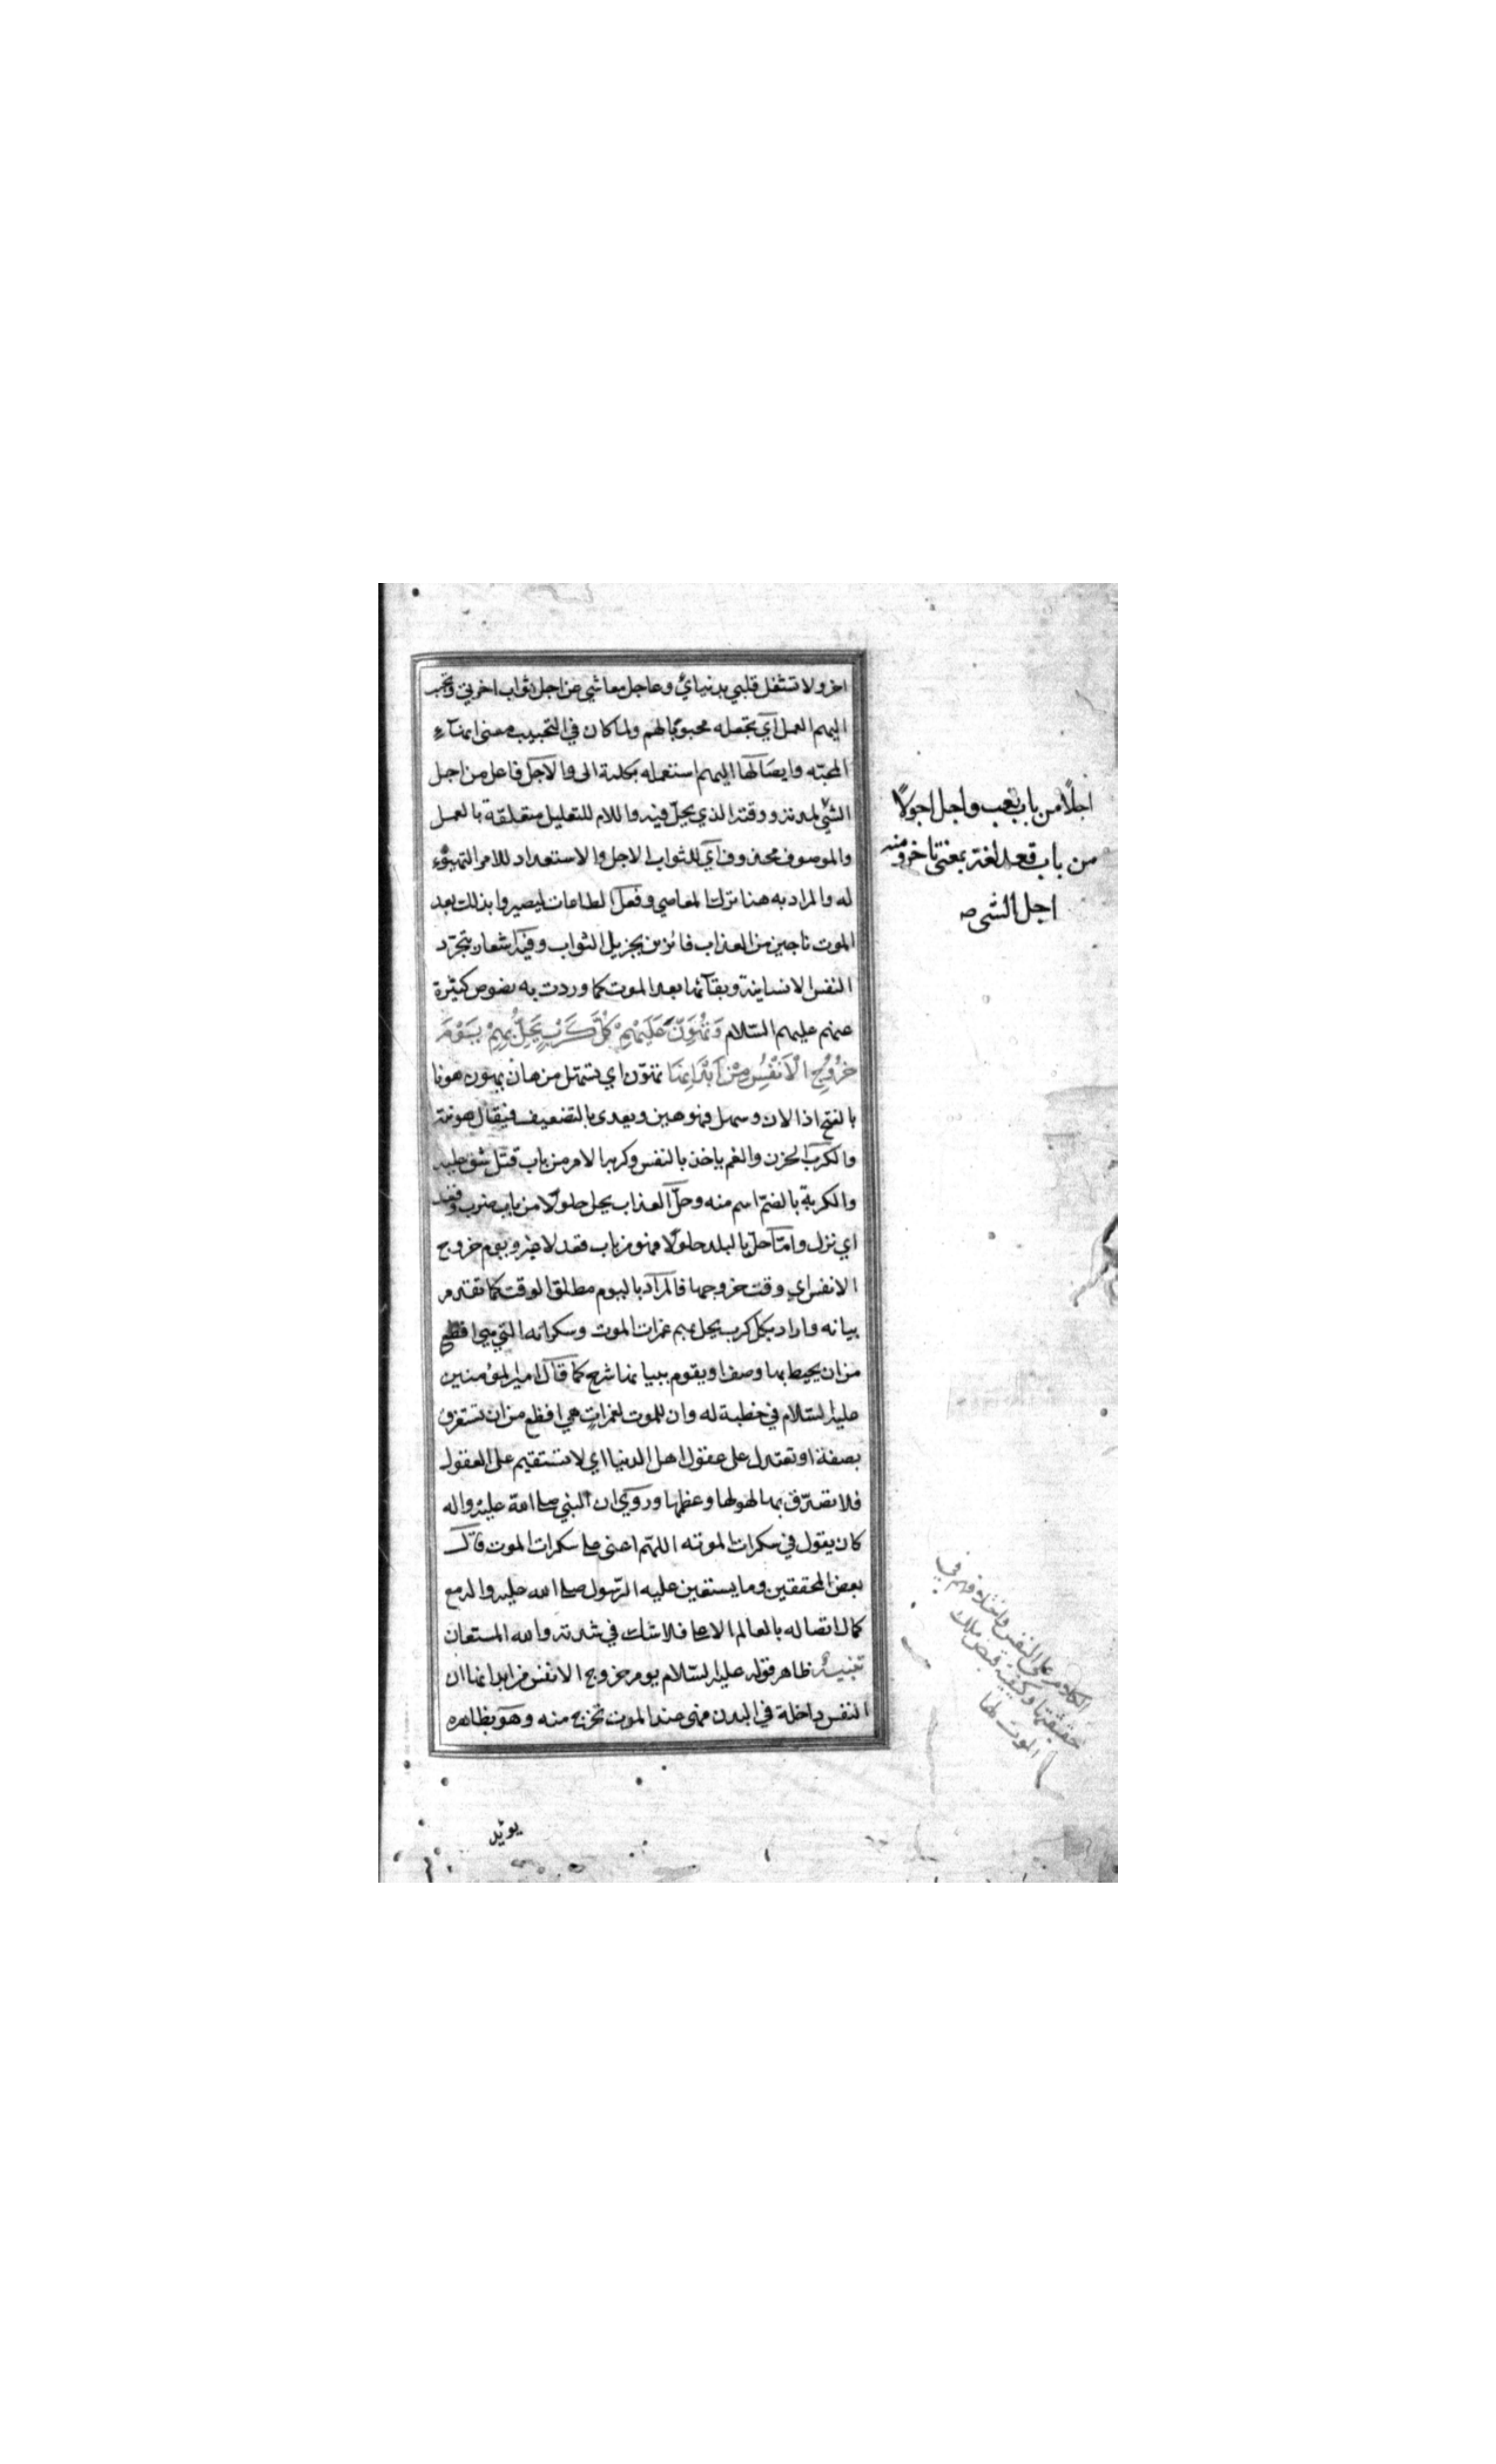 اخر ولا تشغل قلبي بدنياي وعاجل معاشي عن اجل ثواب اخرتي وتحبب
اليهم العمل اي تجعله محبوبا لهم ولما كان في التحبيب معنى انهآء
المحبّه وايصالها اليهم استعمله بكلمة الى والآجل فاعل من اجل
الشئ لمدته ووقته الذي يحلّ فيه واللام للتعليل متعلقة بالعمل
والموصوف محذوف اي للثواب الاجل والاستعداد للامر التهيؤء
له والمراد به هنا ترك المعاصي وفعل الطاعات ليصيروا بذلك بعد
الموت ناجين من العذاب فائزين بجزيل الثواب وفيه اشعار بتجرّد
النفس الانسانية وبقآئها بعد الموت كما وردت به نصوص كثيرة
عنهم عليهم السّلام وَتُهَوِّنَ عَلَيْهِمْ كُلَّ كَرْبٍ يَحِلُّ بِهِمْ يَوْمَ
خُرُوْجِ الْاَنْفُسِ مِنْ اَبْدَانِهَا تهوّن اي تسهّل من هان يهون هونا
بالفتح اذا لان وسهل فهو هين ويعدى بالتضعيف فيقال هونته
والكرب الحزن والغم ياخذ بالنفس وكربه الامر من باب قتل شق عليه
والكربة بالضمّ اسم منه وحلّ العذاب يحل حلولًا من باب ضرب وقعد
اي نزل وامّا حلّ بالبلد حلولًا فهو من باب قعد لا غير ويوم خروج
الانفس اي وقت خروجها فالمراد باليوم مطلق الوقت كما تقدم
بيانه واراد بكل كرب يحل بهم غمرات الموت وسكراته التي هي افظع
من ان يحيط بها وصف او يقوم ببيانها شرح كما قال امير المؤمنين
عليه السّلام في خطبة له وان للموت لغمراتٍ هي افظع من ان تستغرق
بصفة او تعتدل على عقول اهل الدنيا اي لا تستقيم على العقول
فلا تصدّق بها لهولها وعظمها وروي ان النبي صلى الله عليه واله
كان يقول في سكرات موته اللهّم اعنى على سكرات الموت قال
بعض المحققين وما يستعين عليه الرّسول صلى الله عليه واله مع
كمال اتصاله بالعالم الاعلى فلا شك في شدته والله المستعان
تنبيه ظاهر قوله عليه السّلام يوم خروج الانفس من ابدانها ان
النفس داخلة في البدن فهى عند الموت تخرج منه وهو بظاهره
يؤيد
اجلًا من باب تعب واجل اجولًا
من باب قعد لغة بمعنى تاخر ومنه
اجل الشى
الكلام على النفس واختلافهم في
حقيقتها وكيفية قبض ملك
الموت لها